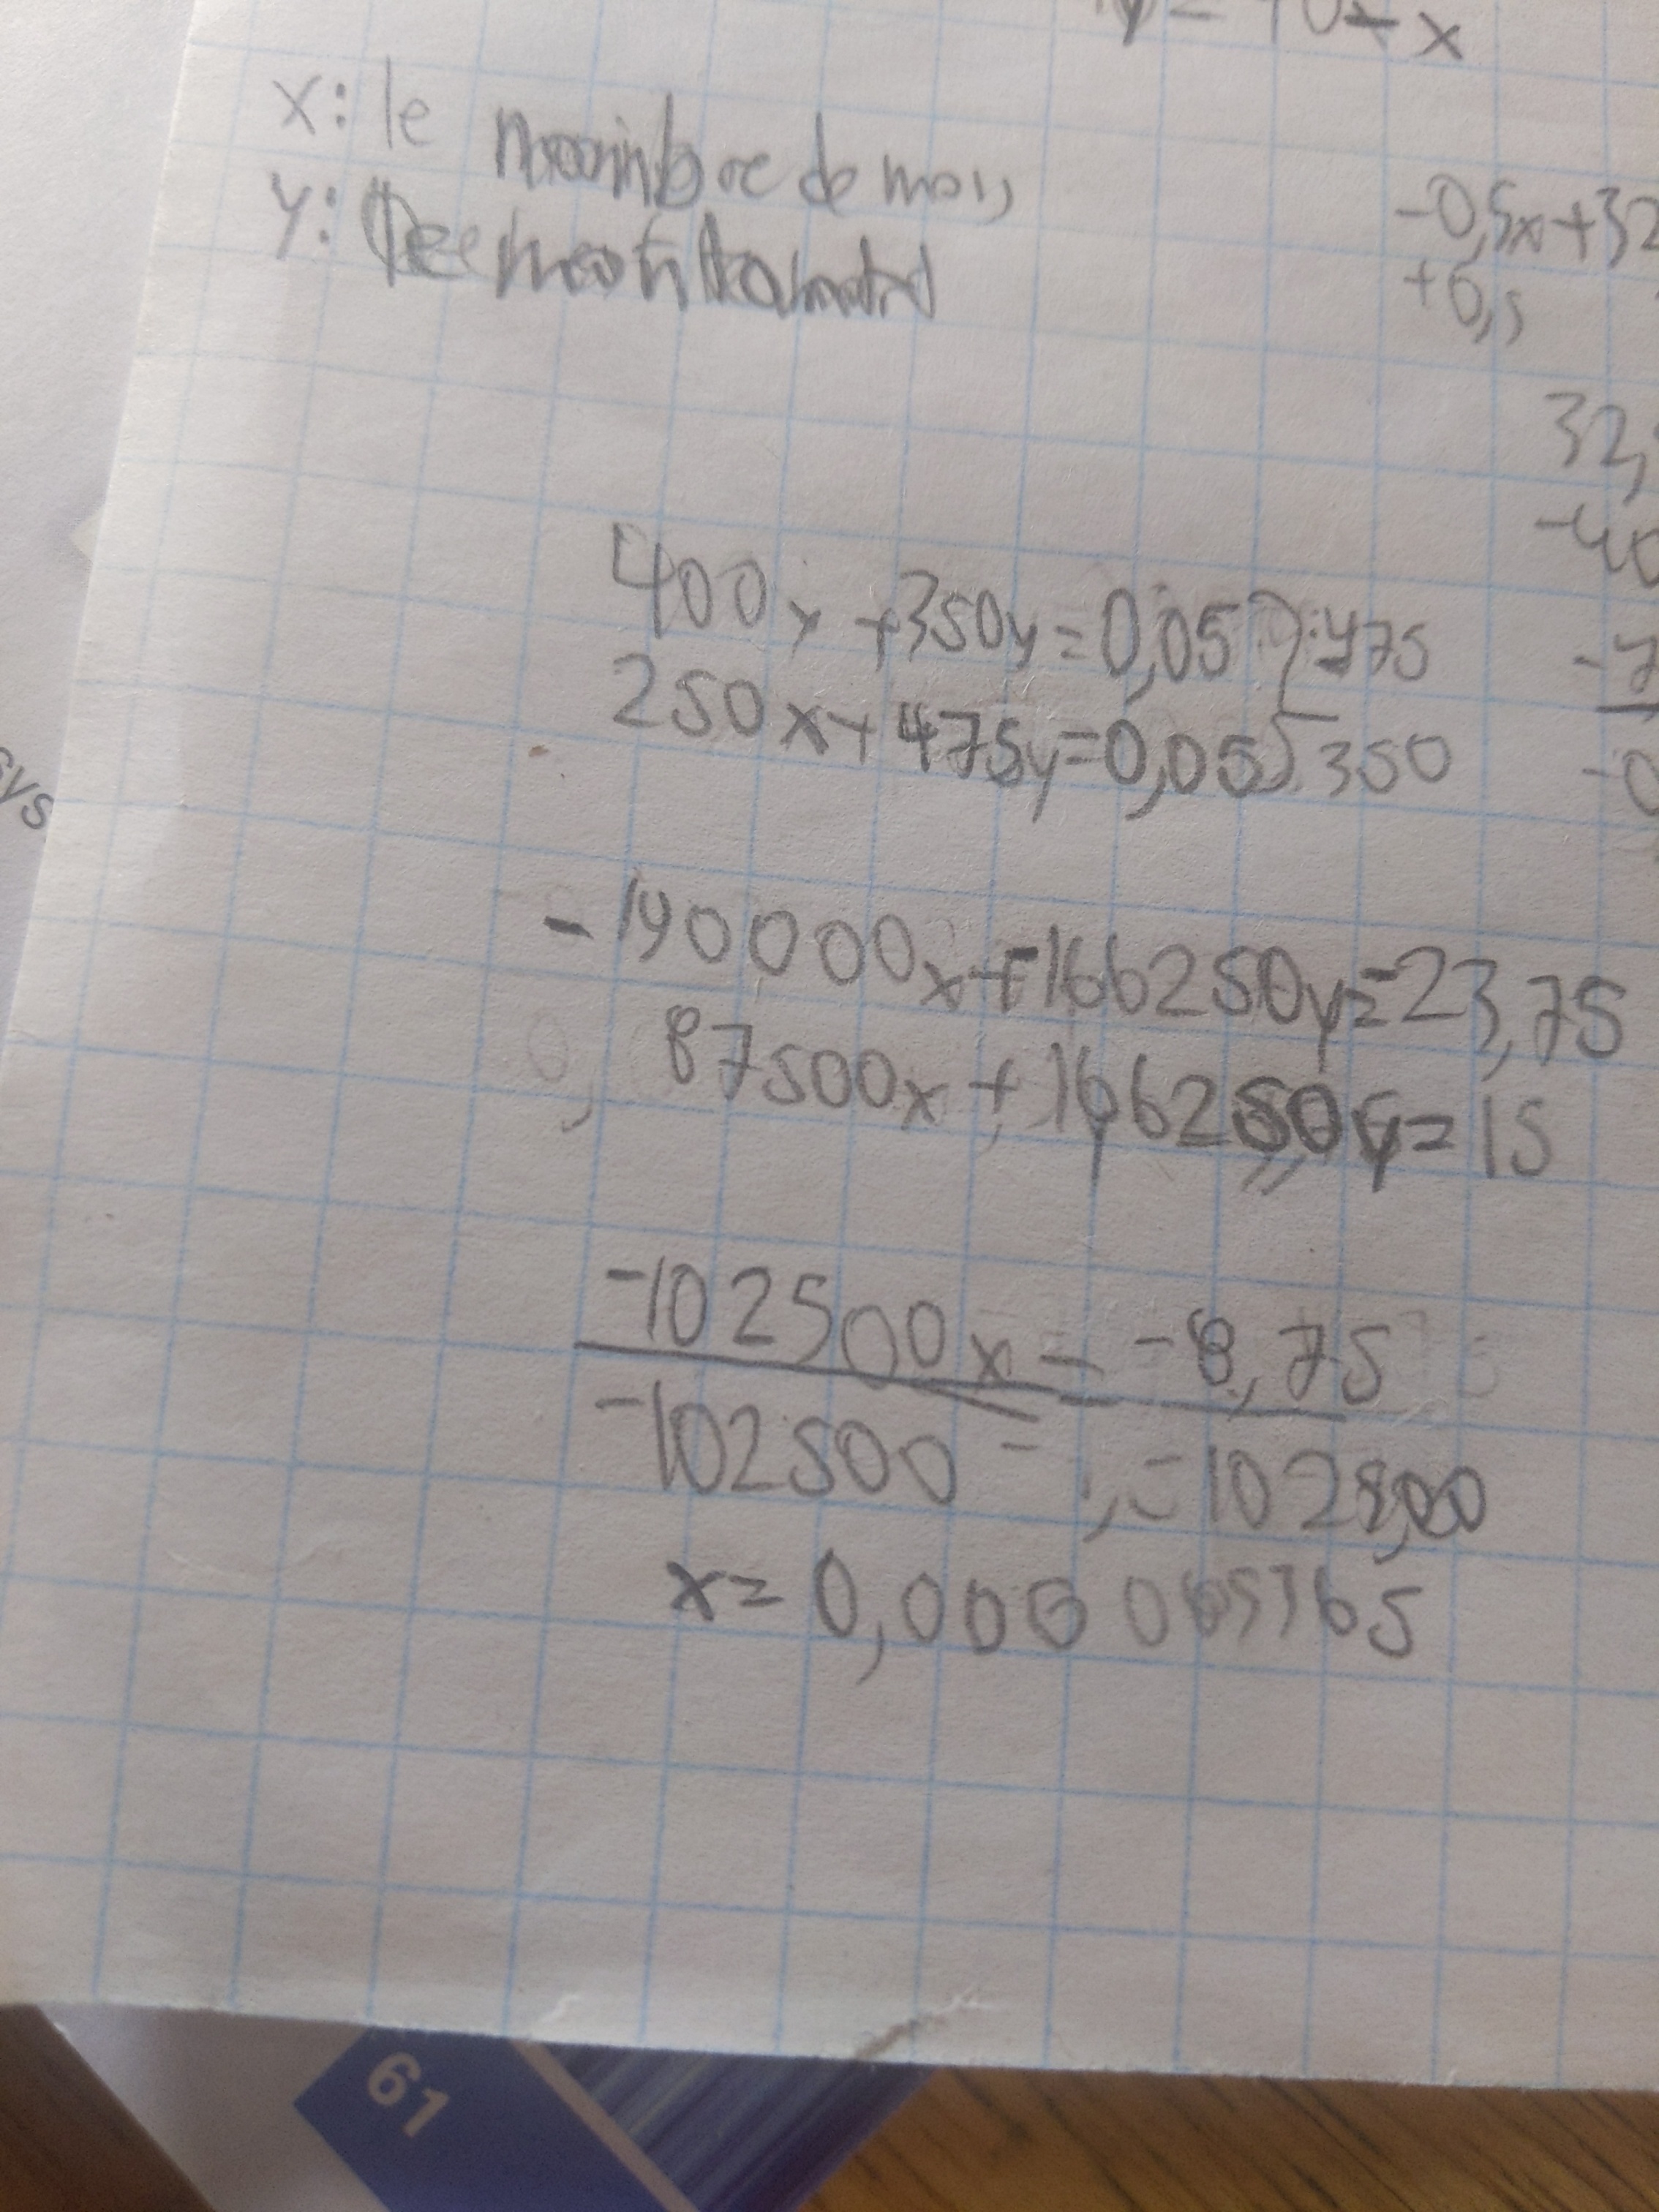 y= 40 - x
x: le nombre de mois
y: le montant
-0,5x+32
+0,5
32,
-40
400x +350y=0,05 ).-475
250x+475y=0,05 ).350
-7
-0
sys
-190000x+-166250y=-23,75
87500x + 166250y=15
-102500x = -8,75
-102500 = -102500
x= 0,000 085365
61